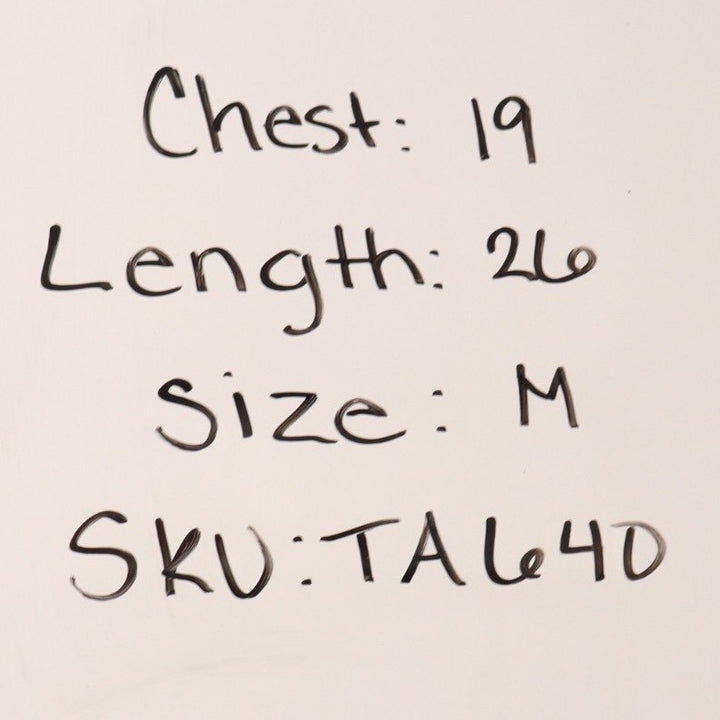 Chest: 19
Length: 26
Size: M
SKU: TA640